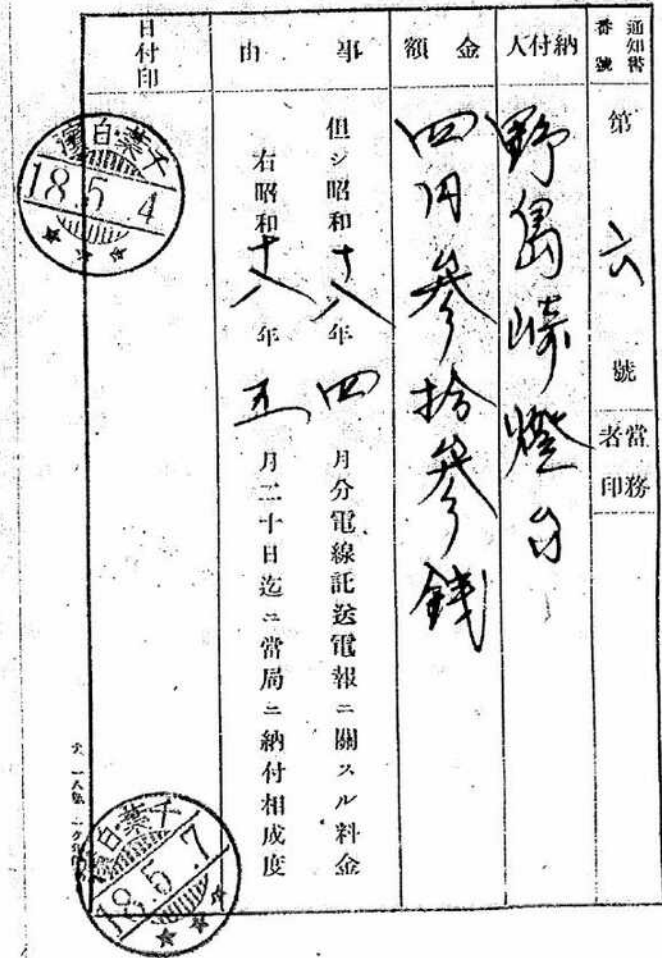 通知書番號 第六號 當務者印
納付人 野島崎燈台
金額 四円参拾参銭
事由 但シ昭和十八年四月分電線託送電報ニ關スル料金
右昭和十八年五月二十日迄ニ當局ニ納付相成度
日付印
千葉・白濱
18.5.4
千葉・白濱
18.5.7